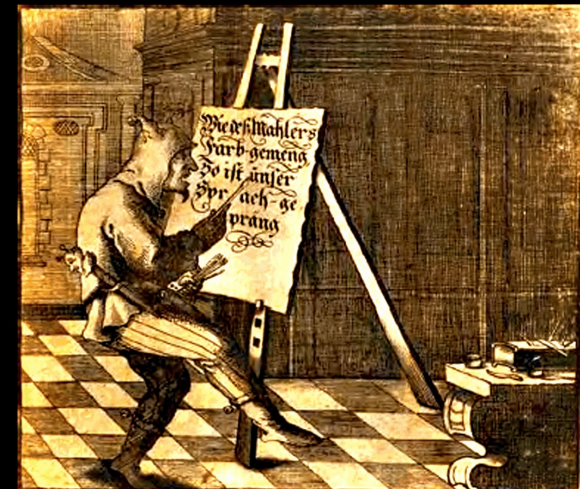 Wie deß Mahlers
Farb-gemeng
So ist unser
Sprach-ge
prâng